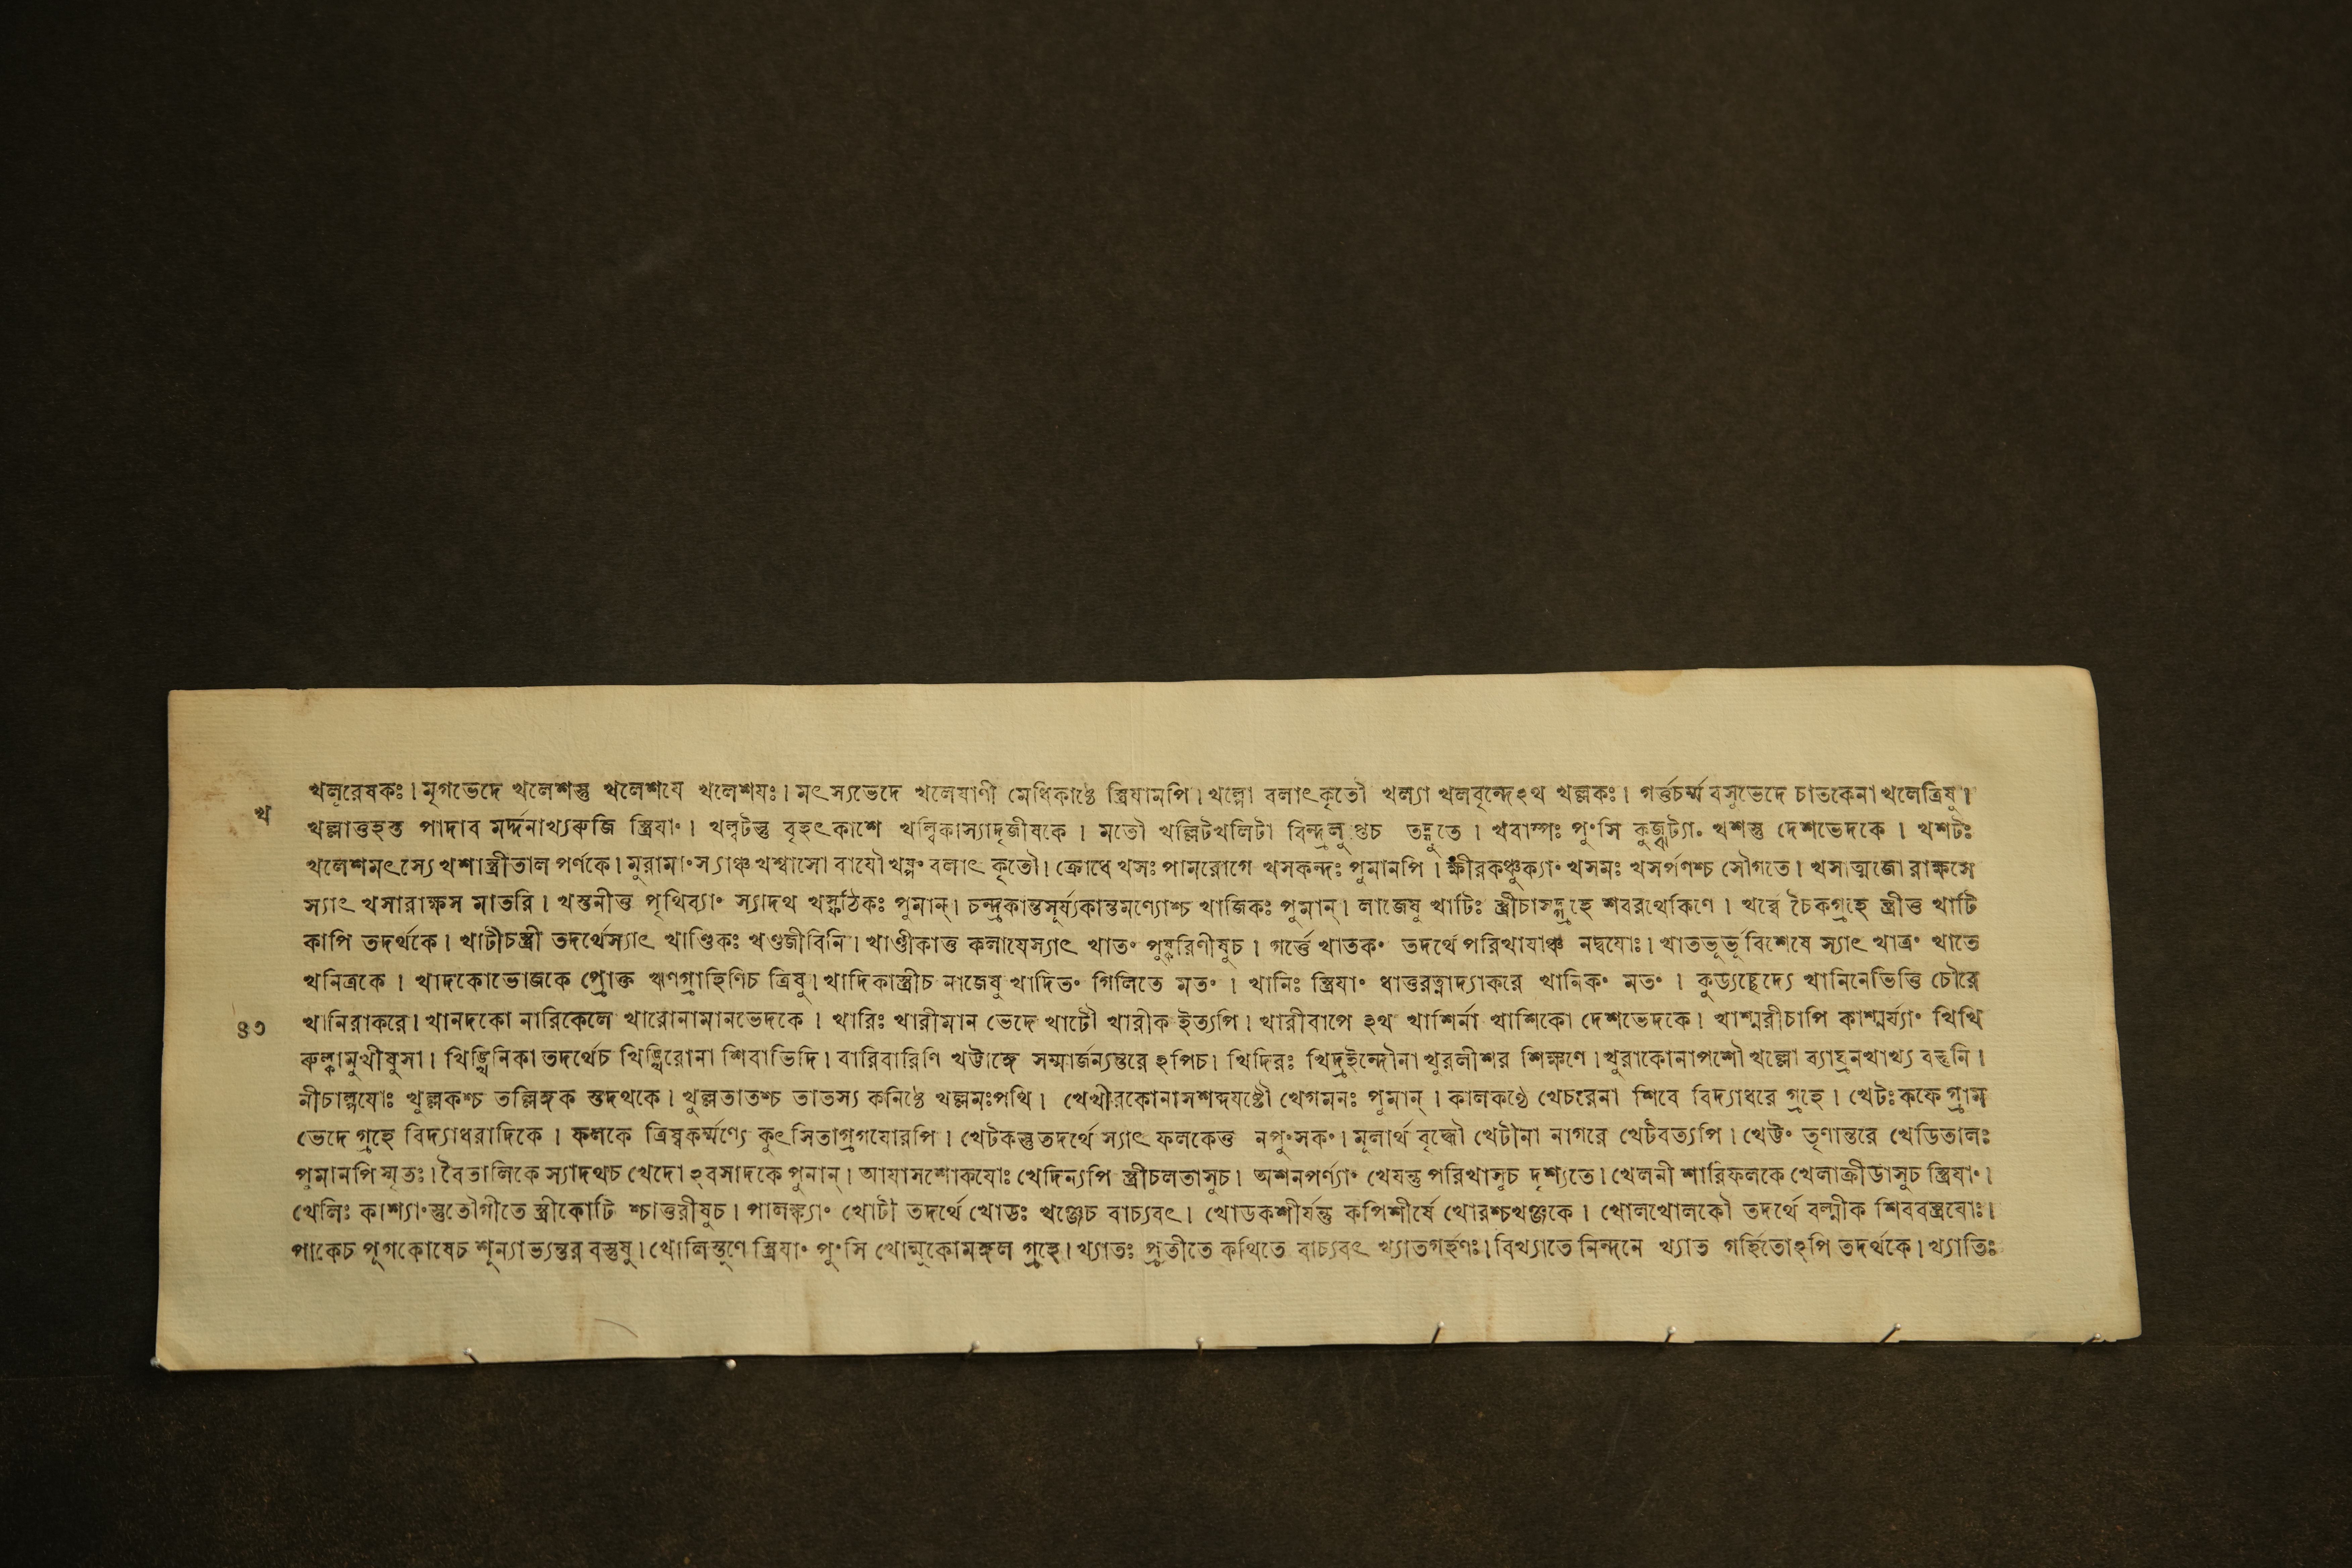 খলূরেষকঃ। মৃগভেদে খলেশস্তু খলেশযে খলেশযঃ। মৎস্যভেদে খলেযাণী মেধিকাষ্ঠে স্ত্রিযামপি। খল্লো বলাৎকৃতৌ খল্যা খলবৃন্দেঽথ খল্লকঃ। গর্ত্তচর্ম্ম বসুভেদে চাতকেনা খলেত্রিষু।
খ
খল্লাত্তহস্ত পাদাব মর্দ্দনাখ্যরুজি স্ত্রিযাং। খল্বটস্তু বৃহৎকাশে খল্বিকাস্যাদৃজীষকে। মতৌ খল্লিটখলিটা বিন্দ্রলুপ্তচ তদ্যুতে। খবাষ্পঃ পুংসি কুজ্ঝট্যাং খশস্তু দেশভেদকে। খশটঃ
খলেশমৎস্যে খশাস্ত্রীতাল পর্ণকে। মুরামাংস্যাঞ্চ খশ্বাসো বাযৌ খষ্পং বলাৎ কৃতৌ। ক্রোধে খসঃ পামরোগে খসকন্দঃ পুমানপি। ক্ষীরকঞ্চুক্যাং খসমঃ খসর্পণশ্চ সৌগতে। খসাত্মজো রাক্ষসে
স্যাৎ খসারাক্ষস মাতরি। খস্তনীত্ত পৃথিব্যাং স্যাদথ খস্ফঠিকঃ পুমান্। চন্দ্রকান্তসূর্য্যকান্তমণ্যোশ্চ খাজিকঃ পুমান্। লাজেষু খাটিঃ স্ত্রীচাসদ্গ্রহে শবরথেকিণে। খর্ব্বে চৈকগ্রহে স্ত্রীত্ত খাটি
কাপি তদর্থকে। খাটীচস্ত্রী তদর্থেস্যাৎ খাণ্ডিকঃ খণ্ডজীবিনি। খাণ্ডীকাত্ত কলাযেস্যাৎ খাতং পুষ্করিণীষুচ। গর্ত্তে খাতকং তদর্থে পরিখাযাঞ্চ নদ্বযোঃ। খাতভূর্ভূ বিশেষে স্যাৎ খাত্রং খাতে
খনিত্রকে। খাদকোভোজকে প্রোক্ত ঋণগ্রাহিণিচ ত্রিষু। খাদিকাস্ত্রীচ লাজেষু খাদিতং গিলিতে মতং। খানিঃ স্ত্রিযাং ধাত্তরত্নাদ্যাকরে খানিকং মতং। কুড্যচ্ছেদ্যে খানিনেভিত্তি চৌরে
৪৩ খানিরাকরে। খানদকো নারিকেলে খারোনামানভেদকে। খারিঃ খারীমান ভেদে খাটৌ খারীক ইত্যপি। খারীবাপে ঽথ খাশির্না খাশিকো দেশভেদকে। খাশ্মরীচাপি কাশ্মর্য্যাং খিখি
রুল্কামুখীষুসা। খিঙ্খিনিকা তদর্থেচ খিঙ্খিরোনা শিবাভিদি। বারিবারিণি খট্টাঙ্গে সম্মার্জন্যন্তরে ঽপিচ। খিদিরঃ খিদ্রইন্দৌনা খুরলীশর শিক্ষণে। খুরাকোনাপশৌ খল্লো ব্যাঘ্রনখাখ্য বস্তুনি।
নীচাল্পযোঃ খুল্লকশ্চ তল্লিঙ্গক স্তদথকে। খুল্লতাতশ্চ তাতস্য কনিষ্ঠে খল্লমঃপথি। খেখীরকোনাসশব্দযষ্টৌ খেগমনঃ পুমান্। কালকণ্ঠে খেচরেনা শিবে বিদ্যাধরে গ্রহে। খেটঃ কফে গ্রাম
ভেদে গ্রহে বিদ্যাধরাদিকে। ফলকে ত্রিষ্বকর্ম্মণ্যে কুৎসিতাগ্রগযোরপি। খেটকস্তু তদর্থে স্যাৎ ফলকেত্ত নপুংসকং। মূলার্থ বৃদ্ধৌ খেটীনা নাগরে খেটবত্যপি। খেট্টং তৃণান্তরে খেডিতালঃ
পুমানপি স্মৃতঃ। বৈতালিকে স্যাদথচ খেদো ঽবসাদকে পুমান্। আযাসশোকযোঃ খেদিন্যপি স্ত্রীচলতাসুচ। অশনপর্ণ্যাং খেযন্তু পরিখাসুচ দৃশ্যতে। খেলনী শারিফলকে খেলাক্রীডাসুচ স্ত্রিযাং।
খেলিঃ কাশ্যাংস্তুতৌগীতে স্ত্রীকোটি শ্চাত্তরীষুচ। পালঙ্ক্যাং খোটী তদর্থে খোডঃ খঞ্জেচ বাচ্যবৎ। খোডকশীর্যন্তু কপিশীর্ষে খোরশ্চখঞ্জকে। খোলখোলকৌ তদর্থে বল্মীক শিববস্ত্রযোঃ।
পাকেচ পূগকোষেচ শূন্যাভ্যন্তর বস্তুষু। খোলিস্তূণে স্ত্রিযাং পুংসি খোল্মুকোমঙ্গল গ্রহে। খ্যাতঃ প্রতীতে কথিতে বাচ্যবৎ খ্যাতগর্হণঃ। বিখ্যাতে নিন্দনে খ্যাত গর্হিতোঽপি তদর্থকে। খ্যাতিঃ